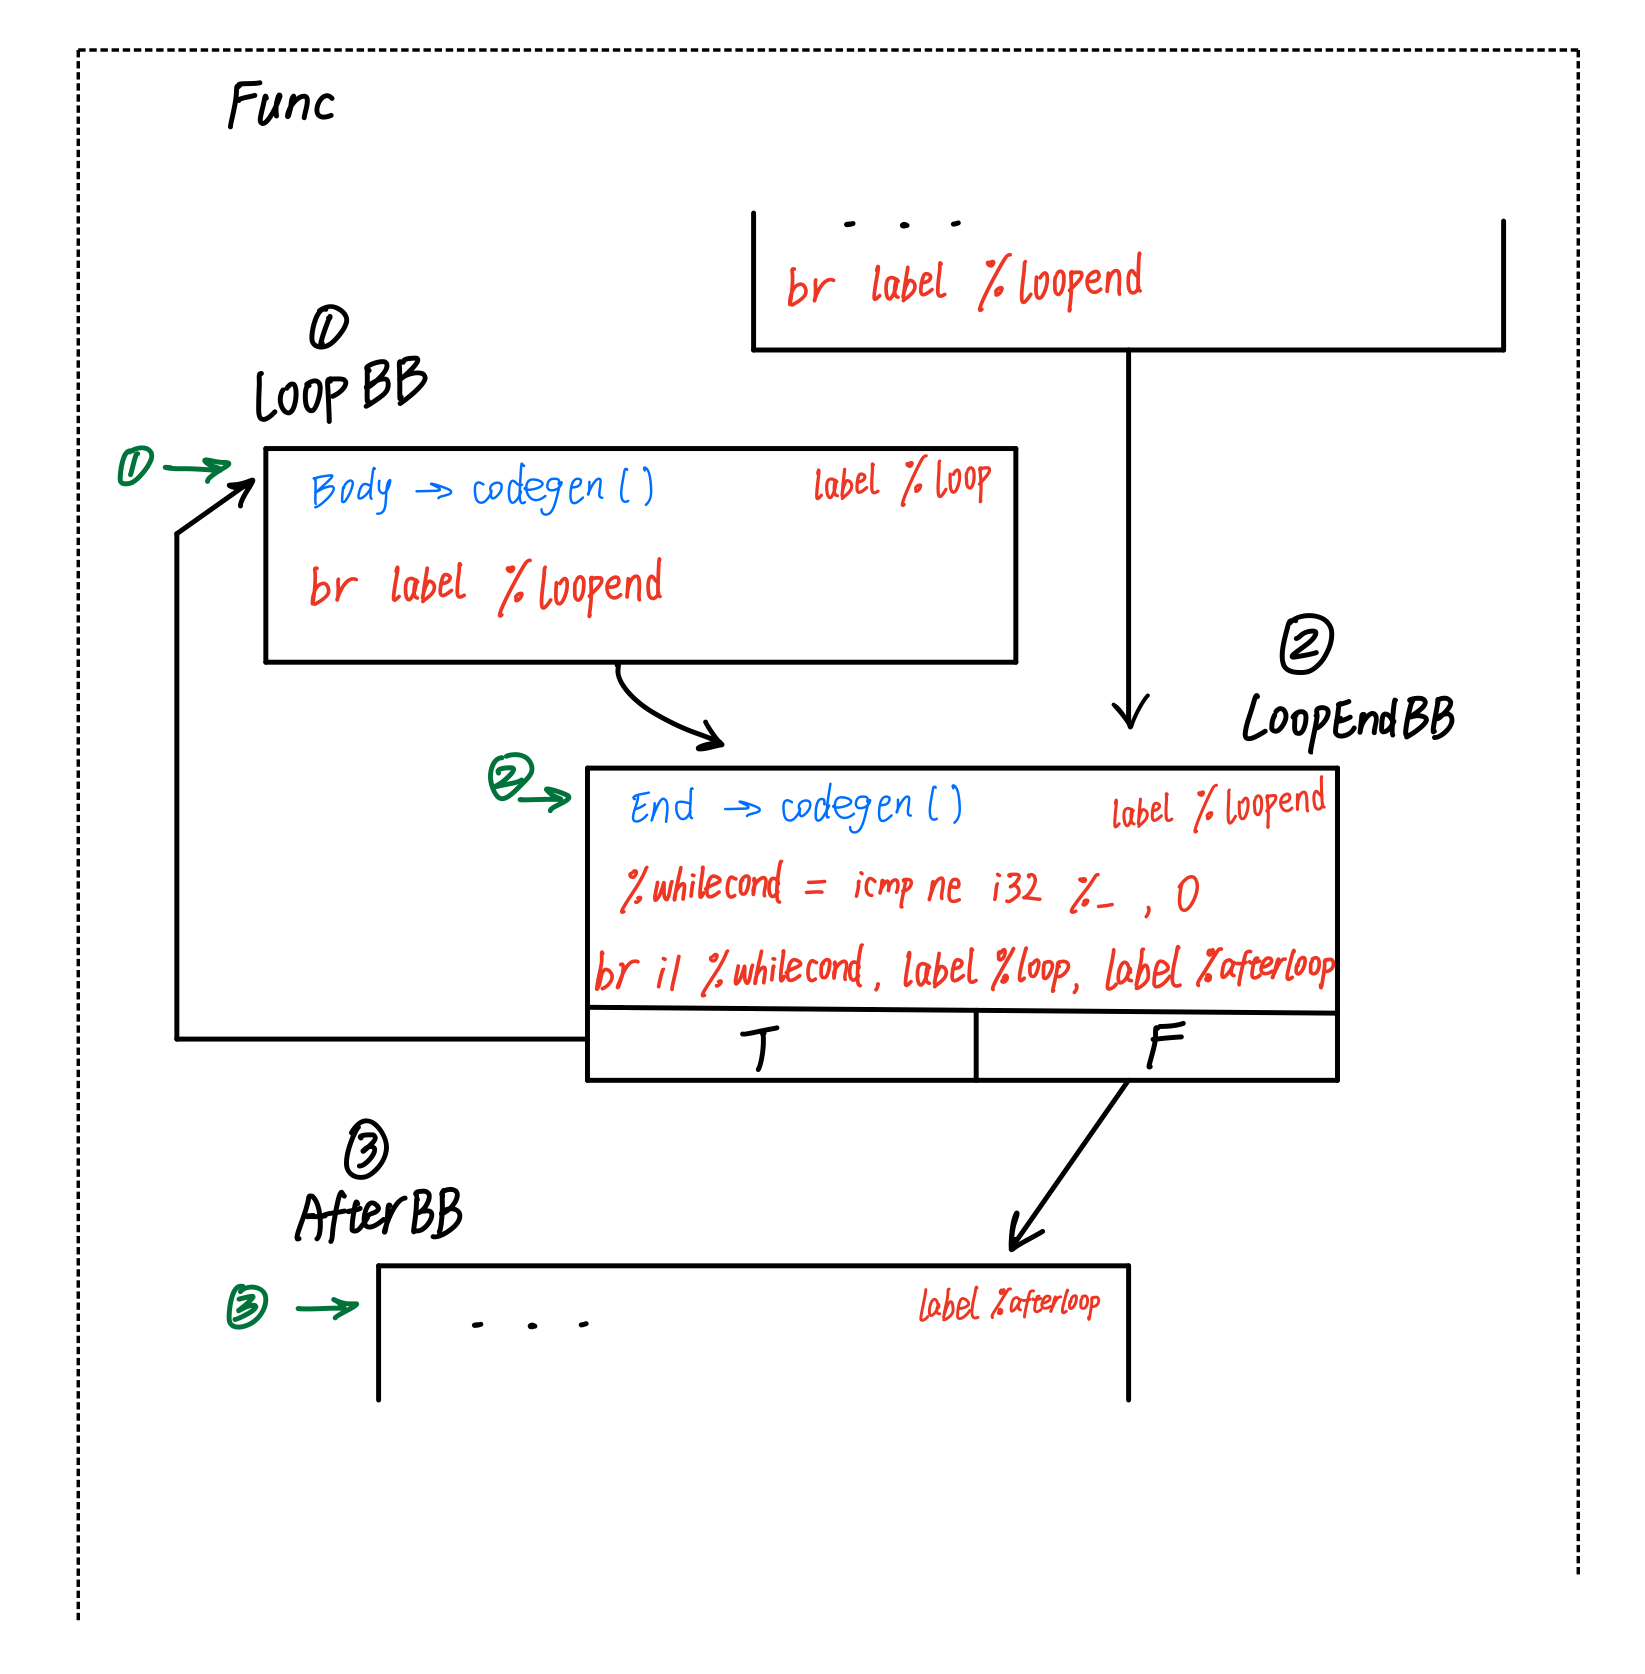 Func
. . .
br label %loopend
①
LoopBB
①→
Body → codegen()
label %loop
br label %loopend
②
LoopEndBB
②→
End → codegen()
label %loopend
%whilecond = icmp ne i32 %_ , 0
br i1 %whilecond, label %loop, label %afterloop
T
F
③
AfterBB
③ →
label %afterloop
. . .